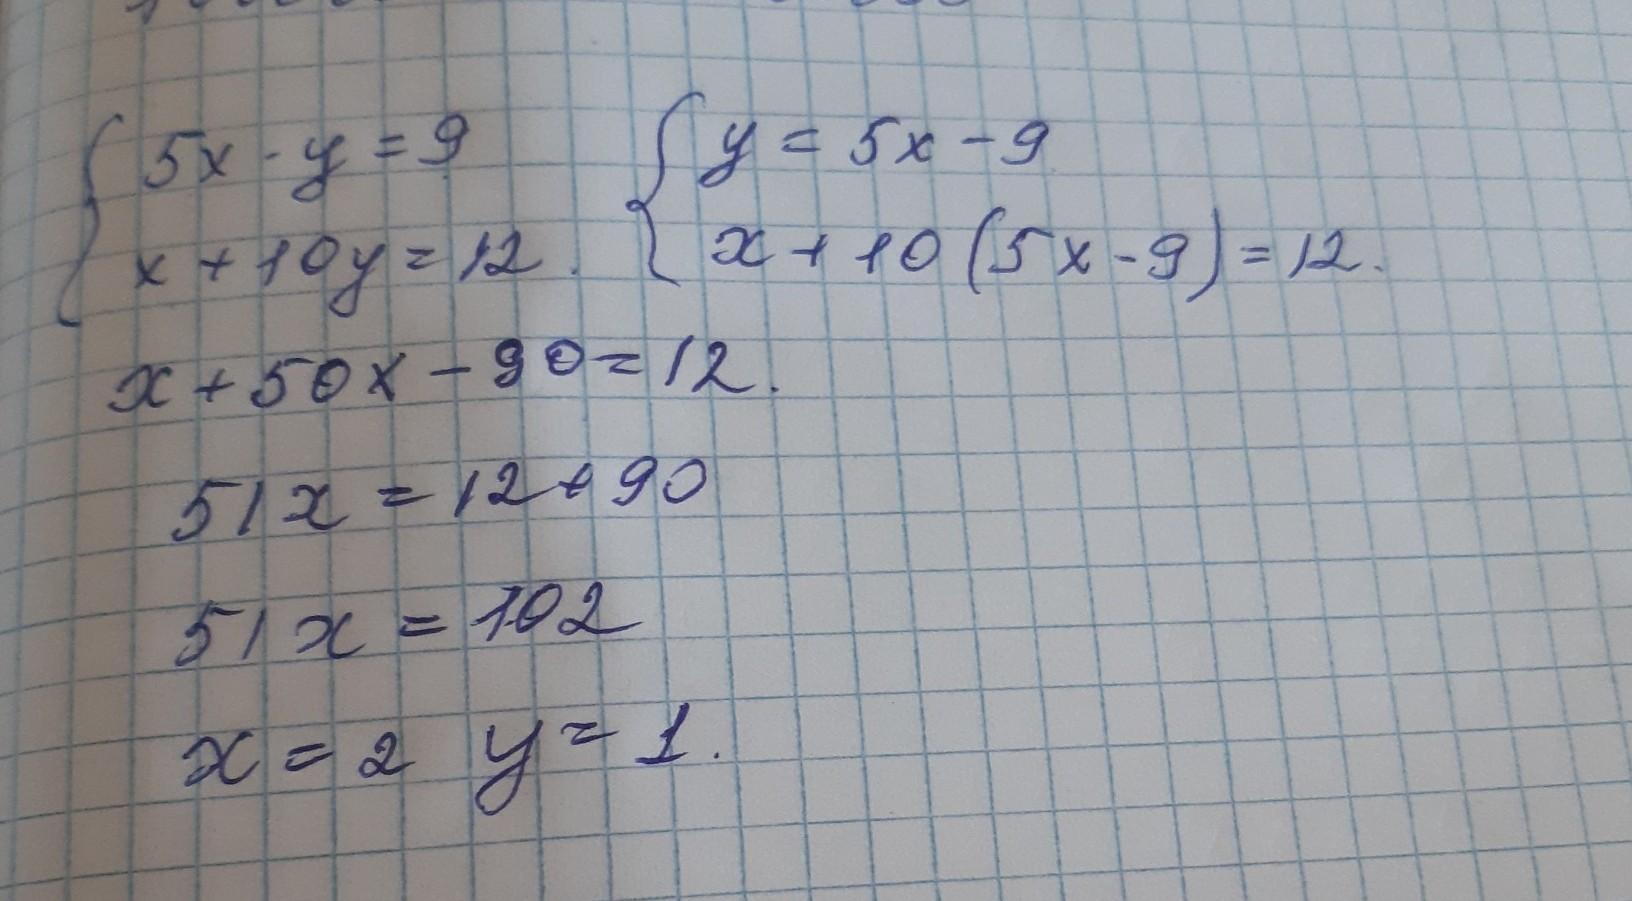 { 5x - y = 9 { y = 5x - 9
x + 10y = 12. x + 10 (5x - 9) = 12.
x + 50x - 90 = 12.
51x = 12 + 90
51x = 102
x = 2 y = 1.